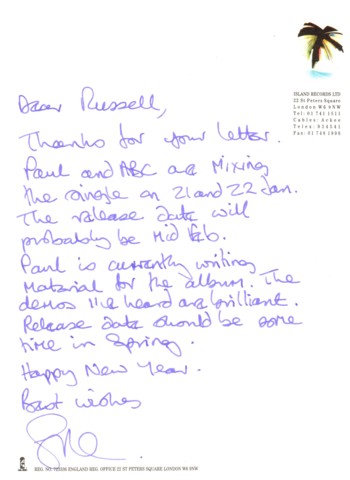 ISLAND RECORDS LTD
22 St Peters Square
London W6 9NW
Tel: 01 741 1511
Cables: Ackee
Telex: 934541
Fax: 01 748 1998
Dear Russell,
Thanks for your letter.
Paul and ABC are Mixing
the single on 21 and 22 Jan.
The release date will
probably be Mid Feb.
Paul is currently writing
Material for the album. The
demos I've heard are brilliant.
Release date should be some
time in Spring.
Happy New Year.
Best wishes
REG. NO. ENGLAND REG. OFFICE 22 ST PETERS SQUARE LONDON W6 9NW